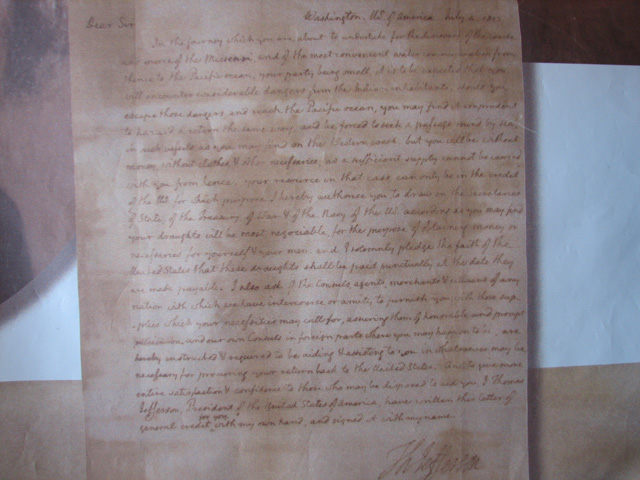 Dear Sir Washington. US. of America. July 4. 1803.
In the journey which you are about to undertake for the discovery of the course
and source of the Missouri, and of the most convenient water communication from
thence to the Pacific ocean, your party being small, it is to be expected that you
will encounter considerable dangers from the Indian inhabitants. should you
escape those dangers and reach the Pacific ocean, you may find it imprudent
to hazard a return the same way, and be forced to seek a passage round by sea,
in such vessels as you may find on the Western coast. but you will be without
money, without clothes & other necessaries; as a sufficient supply cannot be carried
with you from hence. your resource in that case can only be in the credit
of the US. for which purpose I hereby authorise you to draw on the Secretaries
of State, of the Treasury, of War & of the Navy of the US. according as you may find
your draughts will be most negociable, for the purpose of obtaining money or
necessaries for yourself & your men: and I solemnly pledge the faith of the
United States that these draughts shall be paid punctually at the date they
are made payable. I also ask of the Consuls, agents, merchants & citizens of any
nation with which we have intercourse or amity, to furnish you with those sup-
-plies which your necessities may call for, assuring them of honorable and prompt
retribution. and our own Consuls in foreign parts where you may happen to be, are
hereby instructed & required to be aiding & assisting to you in whatsoever may be
necessary for procuring your return back to the United States. And to give more
entire satisfaction & confidence to those who may be disposed to aid you, I Thomas
Jefferson, President of the United States of America, have written this letter of
general credit for you with my own hand, and signed it with my name.
Th: Jefferson